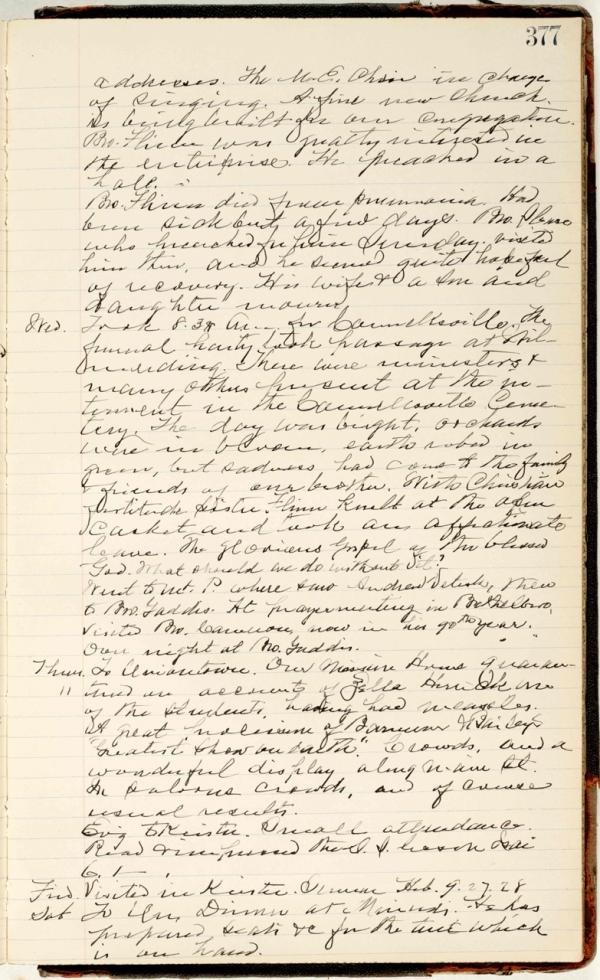 377
addresses. The M.E. Choir in charge
of singing. A fine new Church
is being built for our congregation.
Bro. Flinn was greatly interested in
the enterprise. He preached in a
hall.
Bro. Flinn died from pneumonia. Had
been sick but a few days. Bro.
who preached for him Sunday, visited
him then, and he seemed quite hopeful
of recovery. His wife & a son and
daughter mourn.
Wed. Took 8.38 a.m. for Connellsville. The
funeral party took passage at
There were ministers &
many others present at the in-
terment in the Connellsville Ceme-
tery. The day was bright, orchards
were in bloom, earth robed in
green, but sadness had come to the family
& friends of our brother. With Christian
fortitude Sister Flinn knelt at the open
casket and took an affectionate
leave. The glorious Gospel of the blessed
God. What should we do without it?
Went to Mt. P. where saw Andrew, then
to Bro. Gaddis. At prayermeeting in
visited Bro. Cameron, now in his 90th year.
Over night at Bro. Gaddis.
Thurs. To Uniontown. Our Missive Home quaran-
" tined on account of Zella one
of the students, having had measles.
A great procession of Barnum & Bailey
"Greatest Show on Earth". Crowds, and a
wonderful display along Main St.
In saloons crowds, and of course
usual results.
Evg to Kiester. Small attendance.
Read & impressed the S. S. lesson Isai
6. 1-
Frid. Visited in Kiester. Sermon Heb. 9. 27. 28
Sat. To Dinner at. He has
prepared seats &c for the tent which
is on hand.